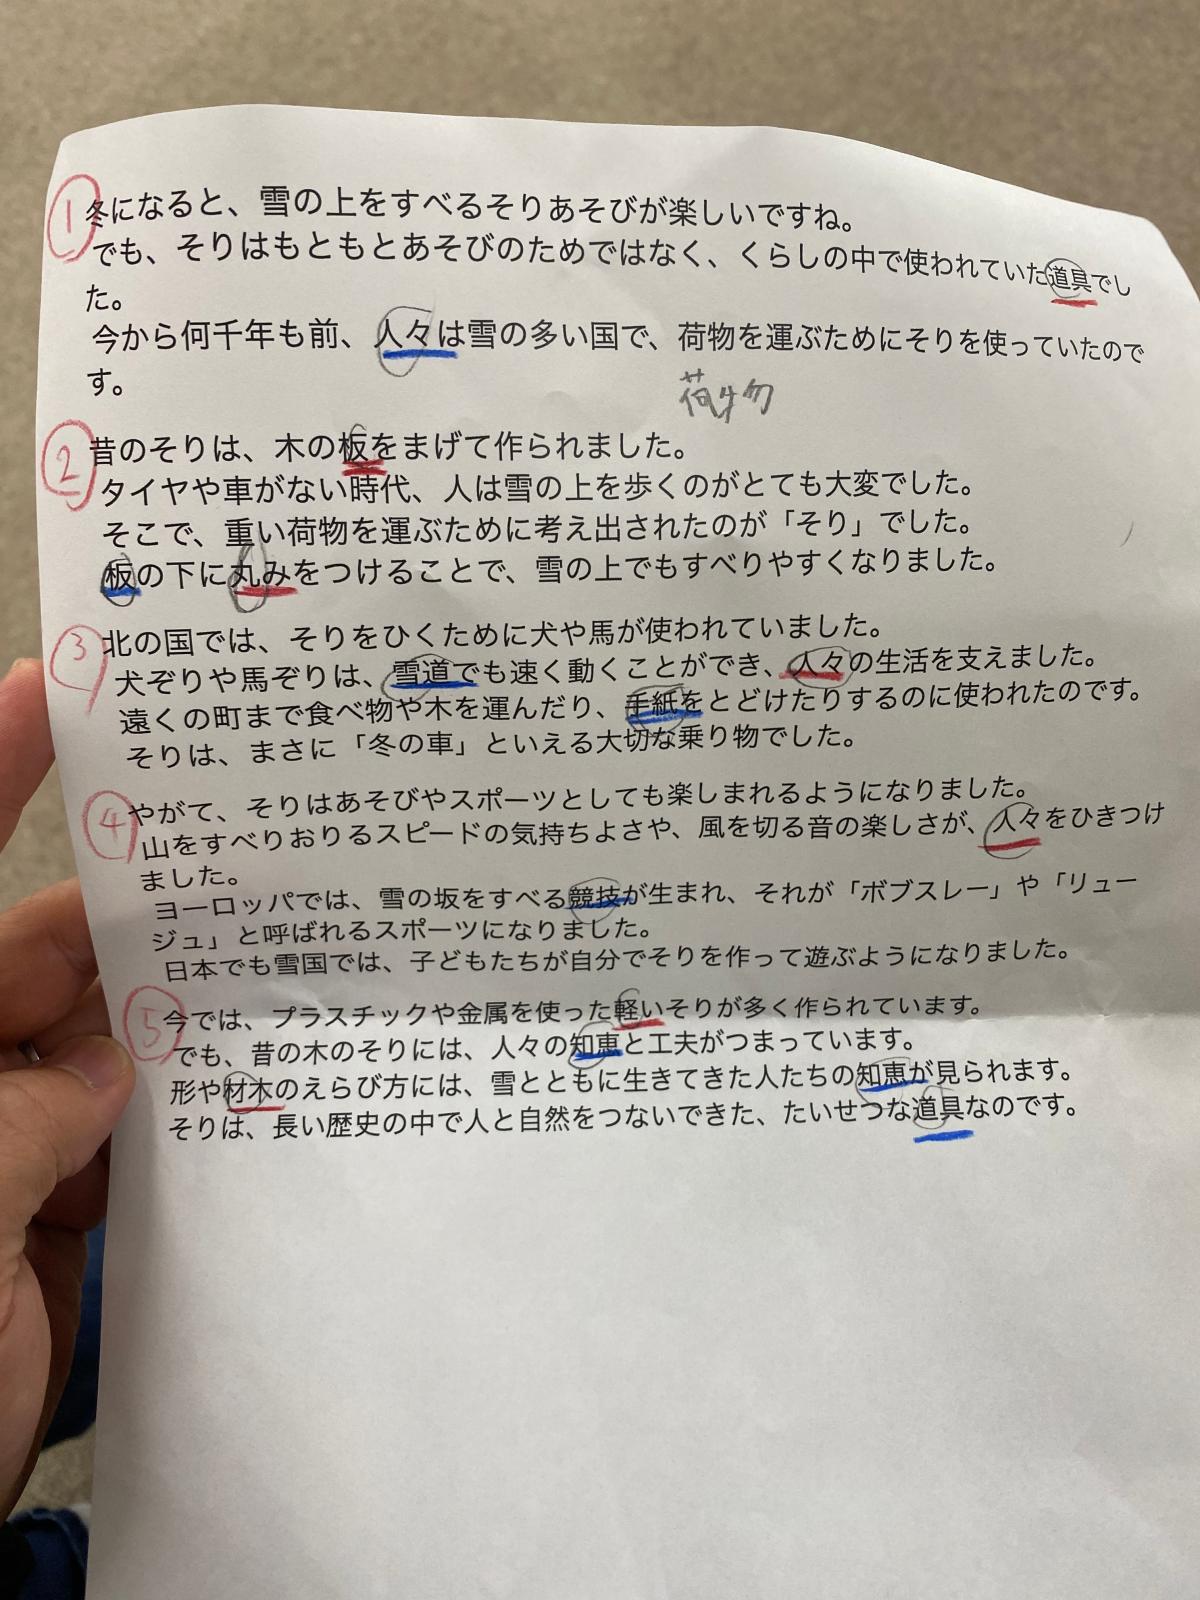 ① 冬になると、雪の上をすべるそりあそびが楽しいですね。
でも、そりはもともとあそびのためではなく、くらしの中で使われていた道具でし
た。
今から何千年も前、人々は雪の多い国で、荷物を運ぶためにそりを使っていたので
す。
荷物
② 昔のそりは、木の板をまげて作られました。
タイヤや車がない時代、人は雪の上を歩くのがとても大変でした。
そこで、重い荷物を運ぶために考え出されたのが「そり」でした。
板の下に丸みをつけることで、雪の上でもすべりやすくなりました。
③ 北の国では、そりをひくために犬や馬が使われていました。
犬ぞりや馬ぞりは、雪道でも速く動くことができ、人々の生活を支えました。
遠くの町まで食べ物や木を運んだり、手紙をとどけたりするのに使われたのです。
そりは、まさに「冬の車」といえる大切な乗り物でした。
④ やがて、そりはあそびやスポーツとしても楽しまれるようになりました。
山をすべりおりるスピードの気持ちよさや、風を切る音の楽しさが、人々をひきつけ
ました。
ヨーロッパでは、雪の坂をすべる競技が生まれ、それが「ボブスレー」や「リュー
ジュ」と呼ばれるスポーツになりました。
日本でも雪国では、子どもたちが自分でそりを作って遊ぶようになりました。
⑤ 今では、プラスチックや金属を使った軽いそりが多く作られています。
でも、昔の木のそりには、人々の知恵と工夫がつまっています。
形や材木のえらび方には、雪とともに生きてきた人たちの知恵が見られます。
そりは、長い歴史の中で人と自然をつないできた、たいせつな道具なのです。